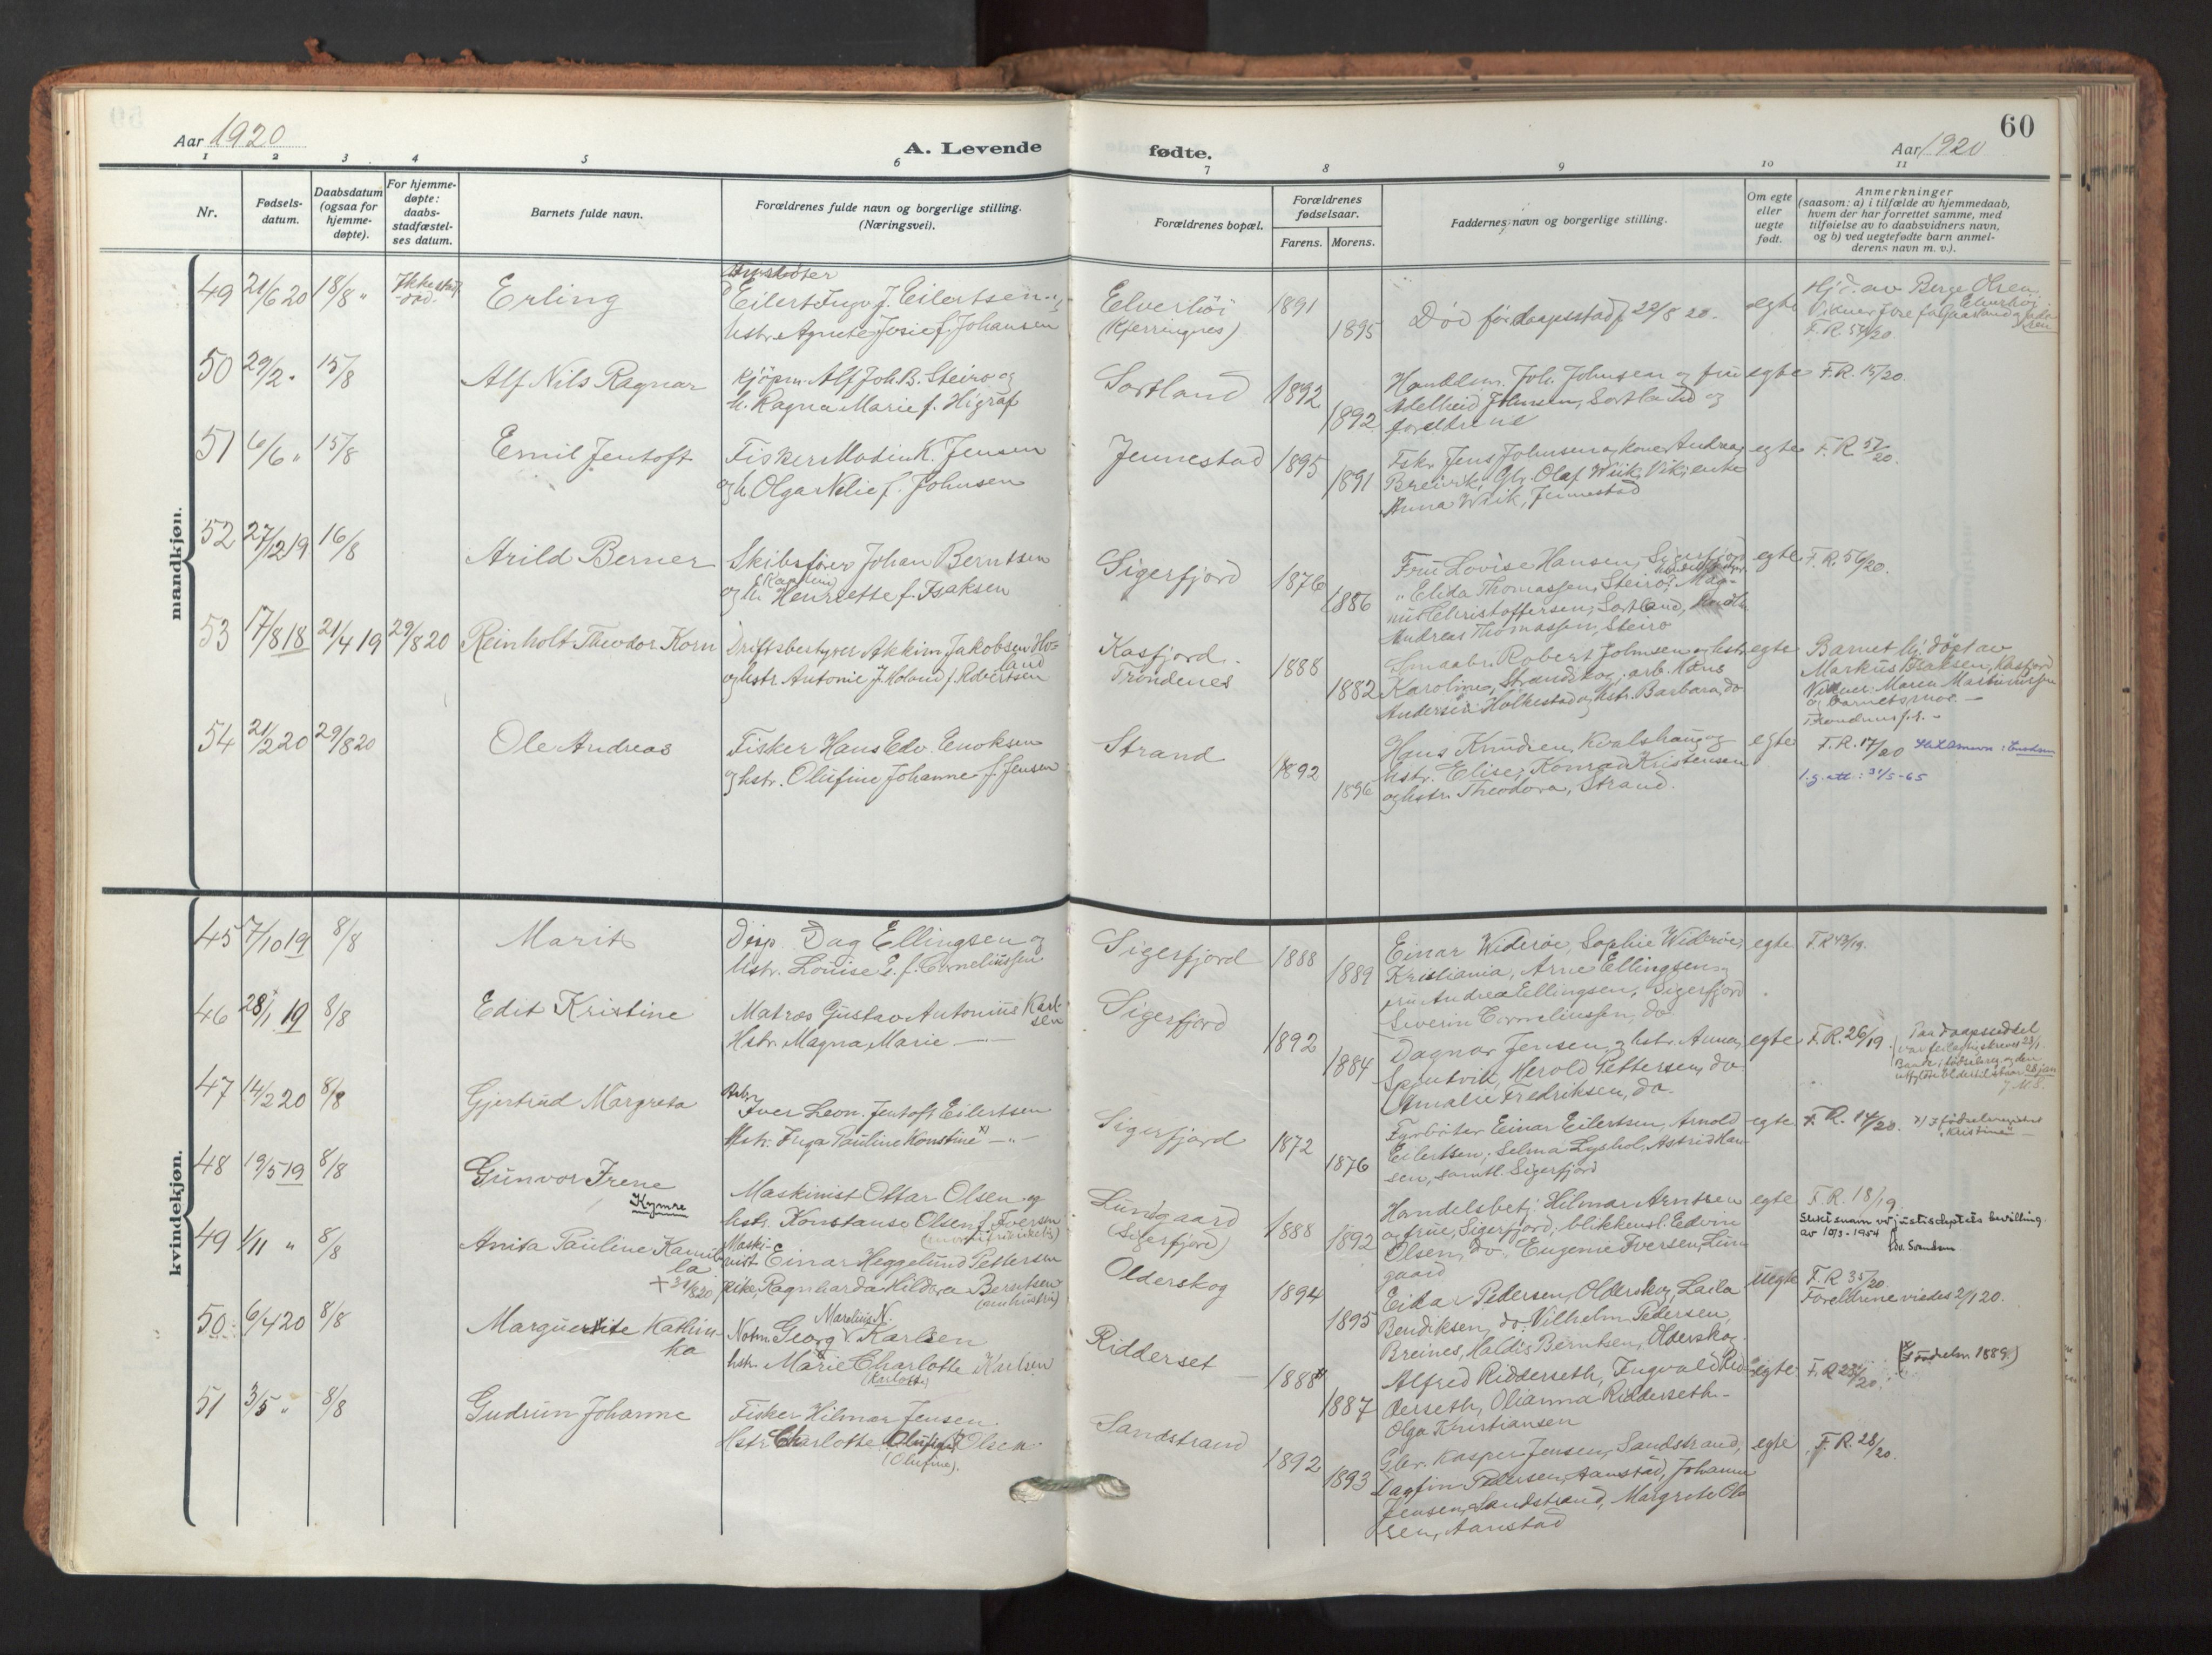 Aar 1920
A. Levende
fødte.
60
Aar 1920
1 2 3 4 5 6 7 8 9 10 11
Nr.
Fødsels-
datum.
Daabsdatum
(ogsaa for
hjemme-
døpte).
For hjemme-
døpte:
daabs-
stadfæstel-
ses datum.
Barnets fulde navn.
Forældrenes fulde navn og borgerlige stilling.
(Næringsvei).
Forældrenes bopæl.
Forældrenes
fødselsaar.
Farens. Morens.
Faddernes navn og borgerlige stilling.
Om egte
eller
uegte
født.
Anmerkninger
(saasom: a) i tilfælde av hjemmedaab,
hvem der har forrettet samme, med
tilføielse av to daabsvidners navn,
og b) ved uegtefødte barn anmel-
derens navn m. v.).
mandkjøn.
49 21/6 20 18/8 "
Erling
Eilert Ingv. J. Eilertsen og
hstr. Agnete Josie f. Johansen
Elverhöi
(Kjerringnes)
1891
1895
Död för daapsstadf 22/8 20.
egte
Hjd. av Berge Olsen
Elverhöi
F.R. 54/20
50 29/2 " 15/8
Alf Nils Ragnar
Kjöpm. Alf Joh. B. Steiro og
h. Ragna Marie f. Higraf
Sortland
1892
1892
Handelsm. Joh. Johnsen og fru
Adelheid Johnsen, Sortland og
foreldrene
egte
F.R. 15/20.
51 6/6 " 15/8
Emil Jentoft
Fisker Modin K. Jensen
og h. Olga Nelie f. Johnsen
Jennestad
1895
1891
Fskr. Jens Johnsen og kone Andrea,
Breivik, Gbr. Olaf Wiik, Vik, enke
Anna Wiik, Jennestad
egte
F.R. 52/20.
52 27/12 19 16/8
Arild Berner
Skibsförer Johan Berntsen
og h. Henriette f. Isaksen
Sigerfjord
1876
1886
Fru Lovise Hansen, Sigerfjord
" Elida Thomassen, Steiro, Mag-
nus Christoffersen, Sortland,
Andreas Thomassen, Steiro
egte
F.R. 56/20.
53 17/8 18 21/4 19 29/8 20
Reinholt Theodor Korn
Driftsbestyrer Akkim Jakobsen Ho-
land
og hstr. Antonie J. Holand f. Robertsen
Kasfjord.
Trondenes
1888
1882
Smaabr. Robert Johnsen og hstr.
Karoline, Strandskog; arb. Hans
Andersen Holkestad og hstr. Barbara, do
egte
Barnet hj. döpt av
Markus Isaksen, Kasfjord
Vidner: Maren Martinussen
og barnets mor. –
Trondenes p.s. –
54 21/2 20 29/8 20
Ole Andreas
Fisker Hans Edv. Enoksen
og hstr. Olufine Johanne f. Jensen
Strand
1892
1896
Hans Knudsen, Kvalshaug og
hstr. Elise; Konrad Kristensen
og hstr. Theodora, Strand.
egte
F.R. 17/20
l.g. att: 31/5-65
kvindekjøn.
45 7/10 19 8/8
Marit
Disp. Dag Ellingsen og
hstr. Louise E. f. Corneliussen
Sigerfjord
1888
1889
Einar Wideröe, Sophie Wideröe,
Kristiania, Arne Ellingsen og
fru Andrea Ellingsen, Sigerfjord
Severin Corneliussen, do
egte
F.R. 43/19.
46 28/1 19 8/8
Edit Kristine
Matros Gustav Antonius Karl-
sen
Hstr. Magna Marie —"—
Sigerfjord
1892
1884
Dagnar Jensen og hstr. Anna,
Spjutvik, Herold Pettersen, do
Amalie Fredriksen, do.
egte
F.R. 26/19.
Paa daapssedsel
J.M.S.
47 14/2 20 8/8
Gjertrud Margreta
Arb.
Iver Leon. Jentoft Eilertsen
Hstr. Inga Pauline Konstine x) —"—
Sigerfjord
1872
1876
Fyrböter Einar Eilertsen, Arnold
Eilertsen; Selma Lyshol, Astrid Han-
sen, samtl. Sigerfjord
egte
F.R. 14/20.
x) I födselsregistret
"Kristine"
48 19/5 19 8/8
Gunvor Irene
Kymre
Maskinist Ottar Olsen og
hstr. Konstanse Olsen f. Iversen
Lundgaard
(Sigerfjord)
1888
1892
Handelsbetj. Hilmar Arntsen
og frue, Sigerfjord; blikkensl. Edvin
Olsen, do, Eugenie Iversen, Lun-
gaard
egte
F.R. 18/19
Slektsnam ved justisdeptets bevilling
av 10/3-1954
49 1/11 " 8/8
Anita Pauline Kamil-
la
+ 31/8 20
Maski-
nist Einar Heggelund Pettersen
Pike Ragnharda Hildora Berntsen
Olderskog
1894
1895
Eidar Pedersen, Olderskog, Laila
Bendiksen, do; Vilhelm Pedersen,
Breines, Haldis Berntsen, Olderskog.
uegte
F.R. 35/20.
Foreldrene viedes 2/1 20.
50 6/4 20 8/8
Marguerite Kathin-
ka
Marelius N.
Notm. Georg v Karlsen
hstr. Marie Charlotte Karlsen
(Karlotte)
Ridderset
1888
1887
Alfred Ridderseth, Ingvald Rid-
derseth, Olianna Ridderseth –
Olga Kristiansen
egte
F.R. 23/20.
51 3/5 " 8/8
Gudrun Johanne
Fisker Hilmar Jensen
Hstr. Charlotte Olufine Olsen
(Olufine).
Sandstrand
1892
1893
Gbr. Kasper Jensen, Sandstrand,
Dagfin Pedersen, Aanstad, Johanne
Jensen, Sandstrand, Margrete Ol-
sen, Aanstad
egte
F.R. 28/20.